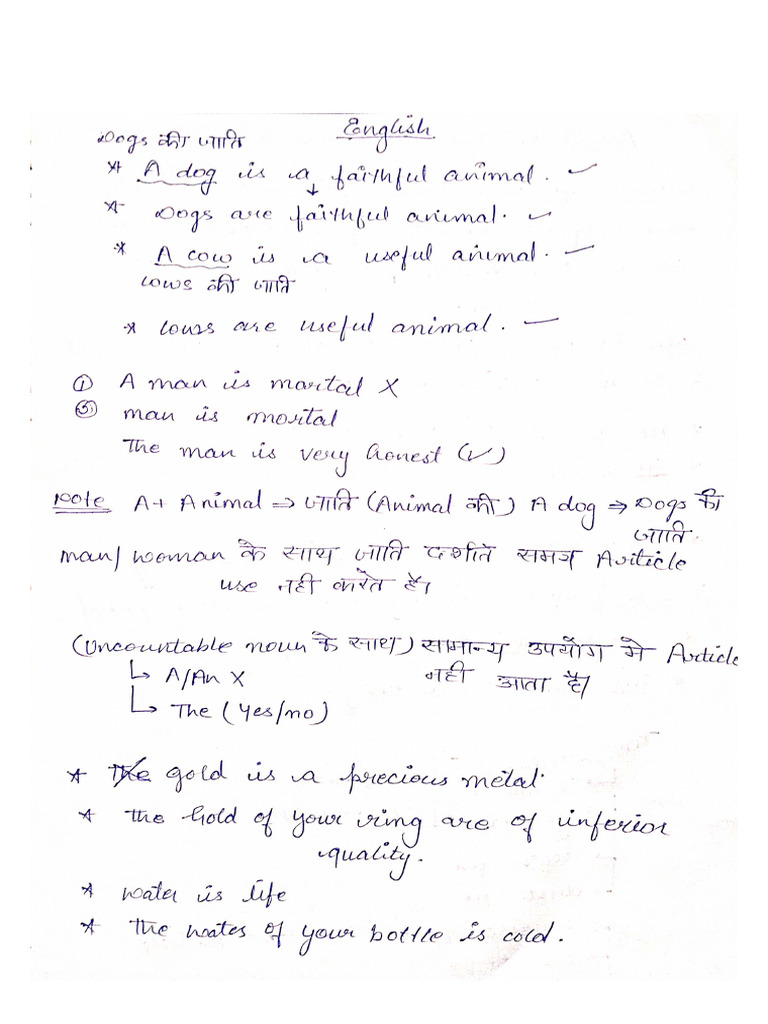 English
Dogs की जाति
* A dog is a faithful animal.
* Dogs are faithful animal.
* A cow is a useful animal.
cows की जाति
* cows are useful animal.
① A man is mortal X
② man is mortal
The man is very honest (✓)
Note A+ Animal ⇒ जाति (Animal की) A dog ⇒ Dogs की
जाति.
man/woman के साथ जाति दर्शाते समय Article
use नही करते है।
(Uncountable noun के साथ) सामान्य उपयोग मे Article
↳ A/An X नही आता है।
↳ The (Yes/no)
* The gold is a precious metal.
* The Gold of your ring are of inferior
quality.
* water is life
* The water of your bottle is cold.